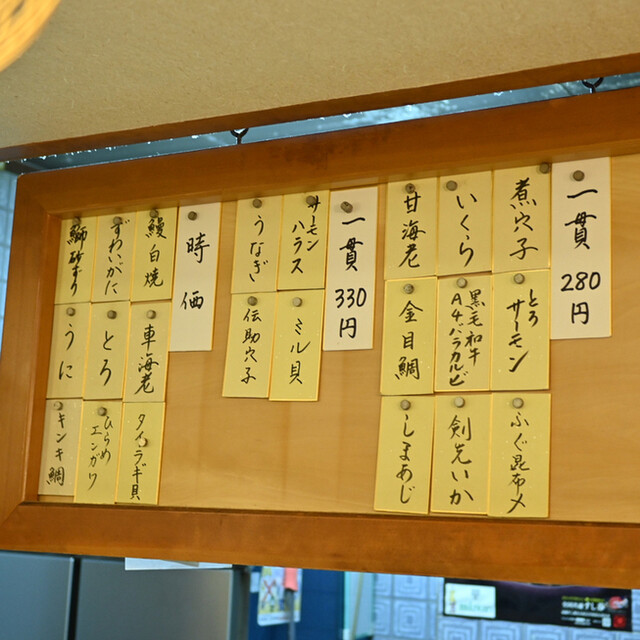 一貫
280
円
煮穴子
とろ
サーモン
ふぐ昆布〆
いくら
黒毛和牛
A4バラカルビ
剣先いか
甘海老
金目鯛
しまあじ
一貫
330
円
サーモン
ハラス
ミル貝
うなぎ
伝助穴子
時価
鰻白焼
車海老
タイラギ貝
ずわいがに
とろ
ひらめ
エンガワ
うに
キンキ鯛